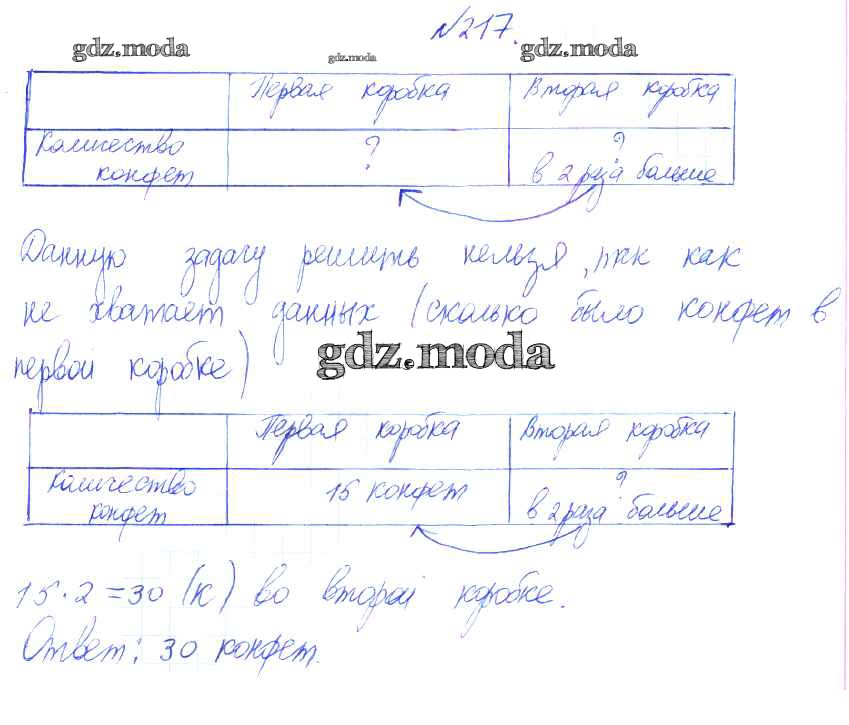 №217.
gdz.moda gdz.moda gdz.moda
Первая коробка Вторая коробка
Количество ? ?
конфет в 2 раза больше
Данную задачу решить нельзя, так как
не хватает данных (сколько было конфет в
первой коробке) gdz.moda
Первая коробка Вторая коробка
Количество 15 конфет ?
конфет в 2 раза больше
15·2=30 (к) во второй коробке.
Ответ: 30 конфет.